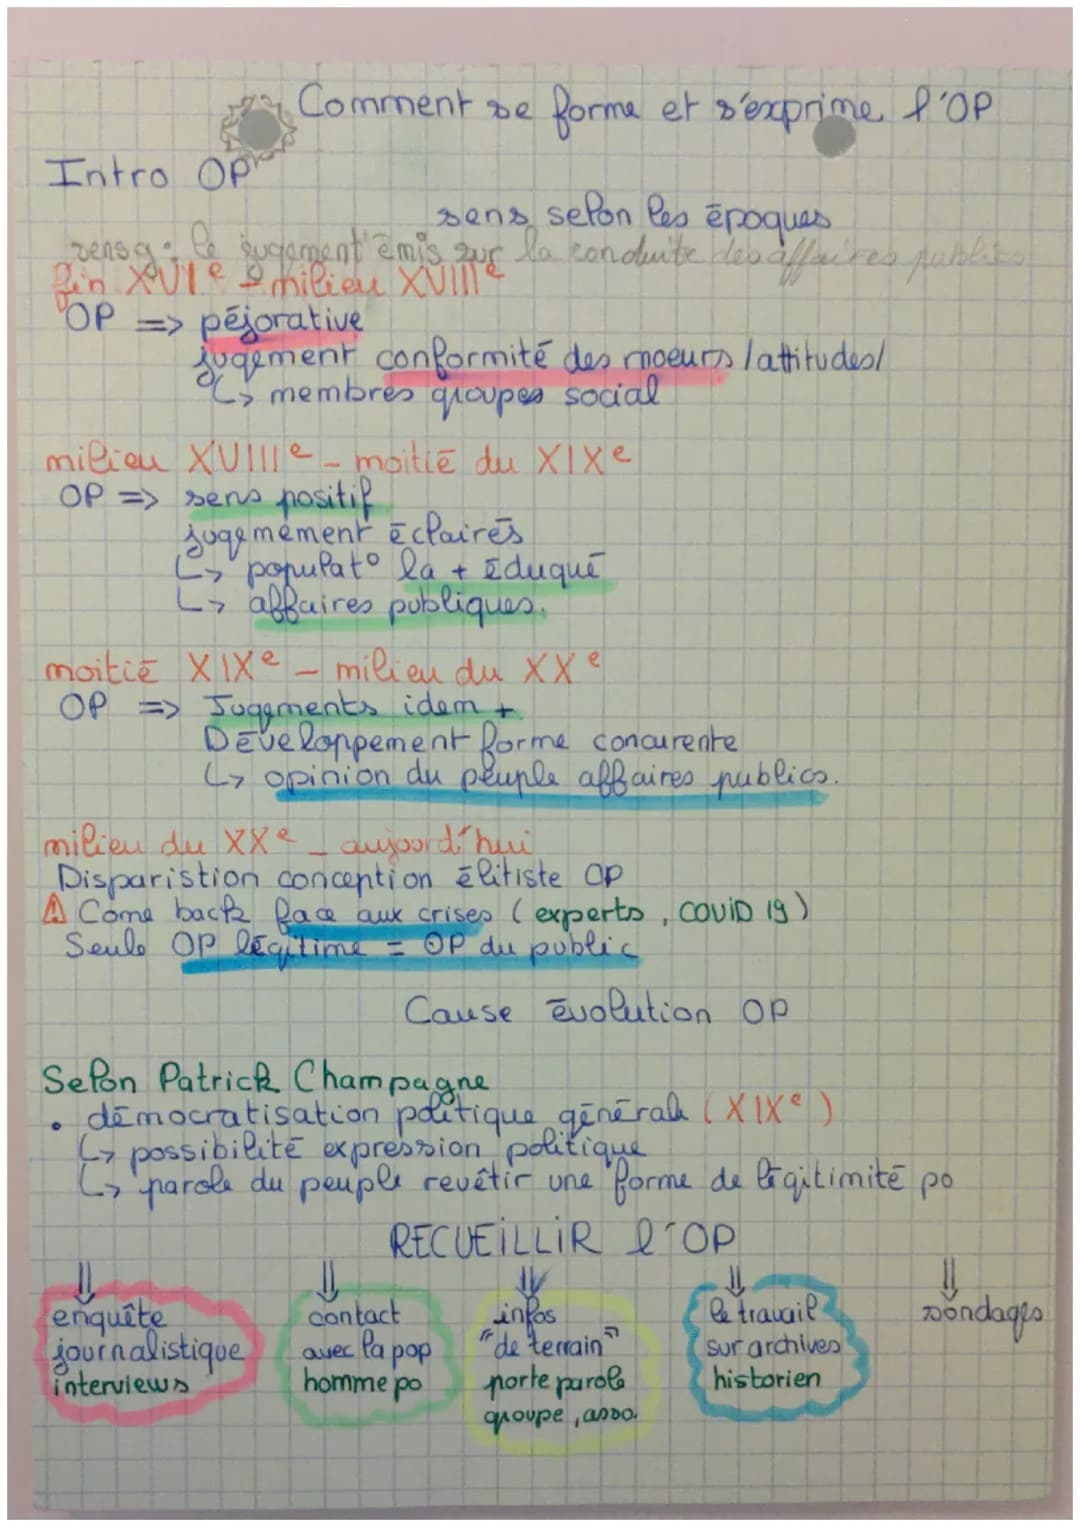 Comment se forme et s'exprime l'OP
Intro OP
sens selon les époques
sens g : le jugement émis sur la conduite des affaires publics
fin XVIe - milieu XVIIIe
OP => péjorative
jugement conformité des moeurs / attitudes/
↳ membres groupes social
milieu XVIIIe - moitié du XIXe
OP => sens positif
jugemement éclairés
↳ populat° la + éduqué
↳ affaires publiques.
moitié XIXe - milieu du XXe
OP => Jugements idem +
Développement forme concurente
↳ opinion du peuple affaires publics.
milieu du XXe - aujourd'hui
Disparistion conception élitiste OP
⚠ Come back face aux crises (experts, COVID 19)
Seule OP légitime = OP du public
Cause évolution OP
Selon Patrick Champagne
• démocratisation politique générale (XIXe)
↳ possibilité expression politique
↳ parole du peuple revêtir une forme de légitimité po
RECUEILLIR l'OP
⇓ ⇓ ⇓ ⇓ ⇓
enquête
journalistique
interviews
contact
avec la pop
homme po
infos
"de terrain"
porte parole
groupe, asso.
le travail
sur archives
historien
sondages